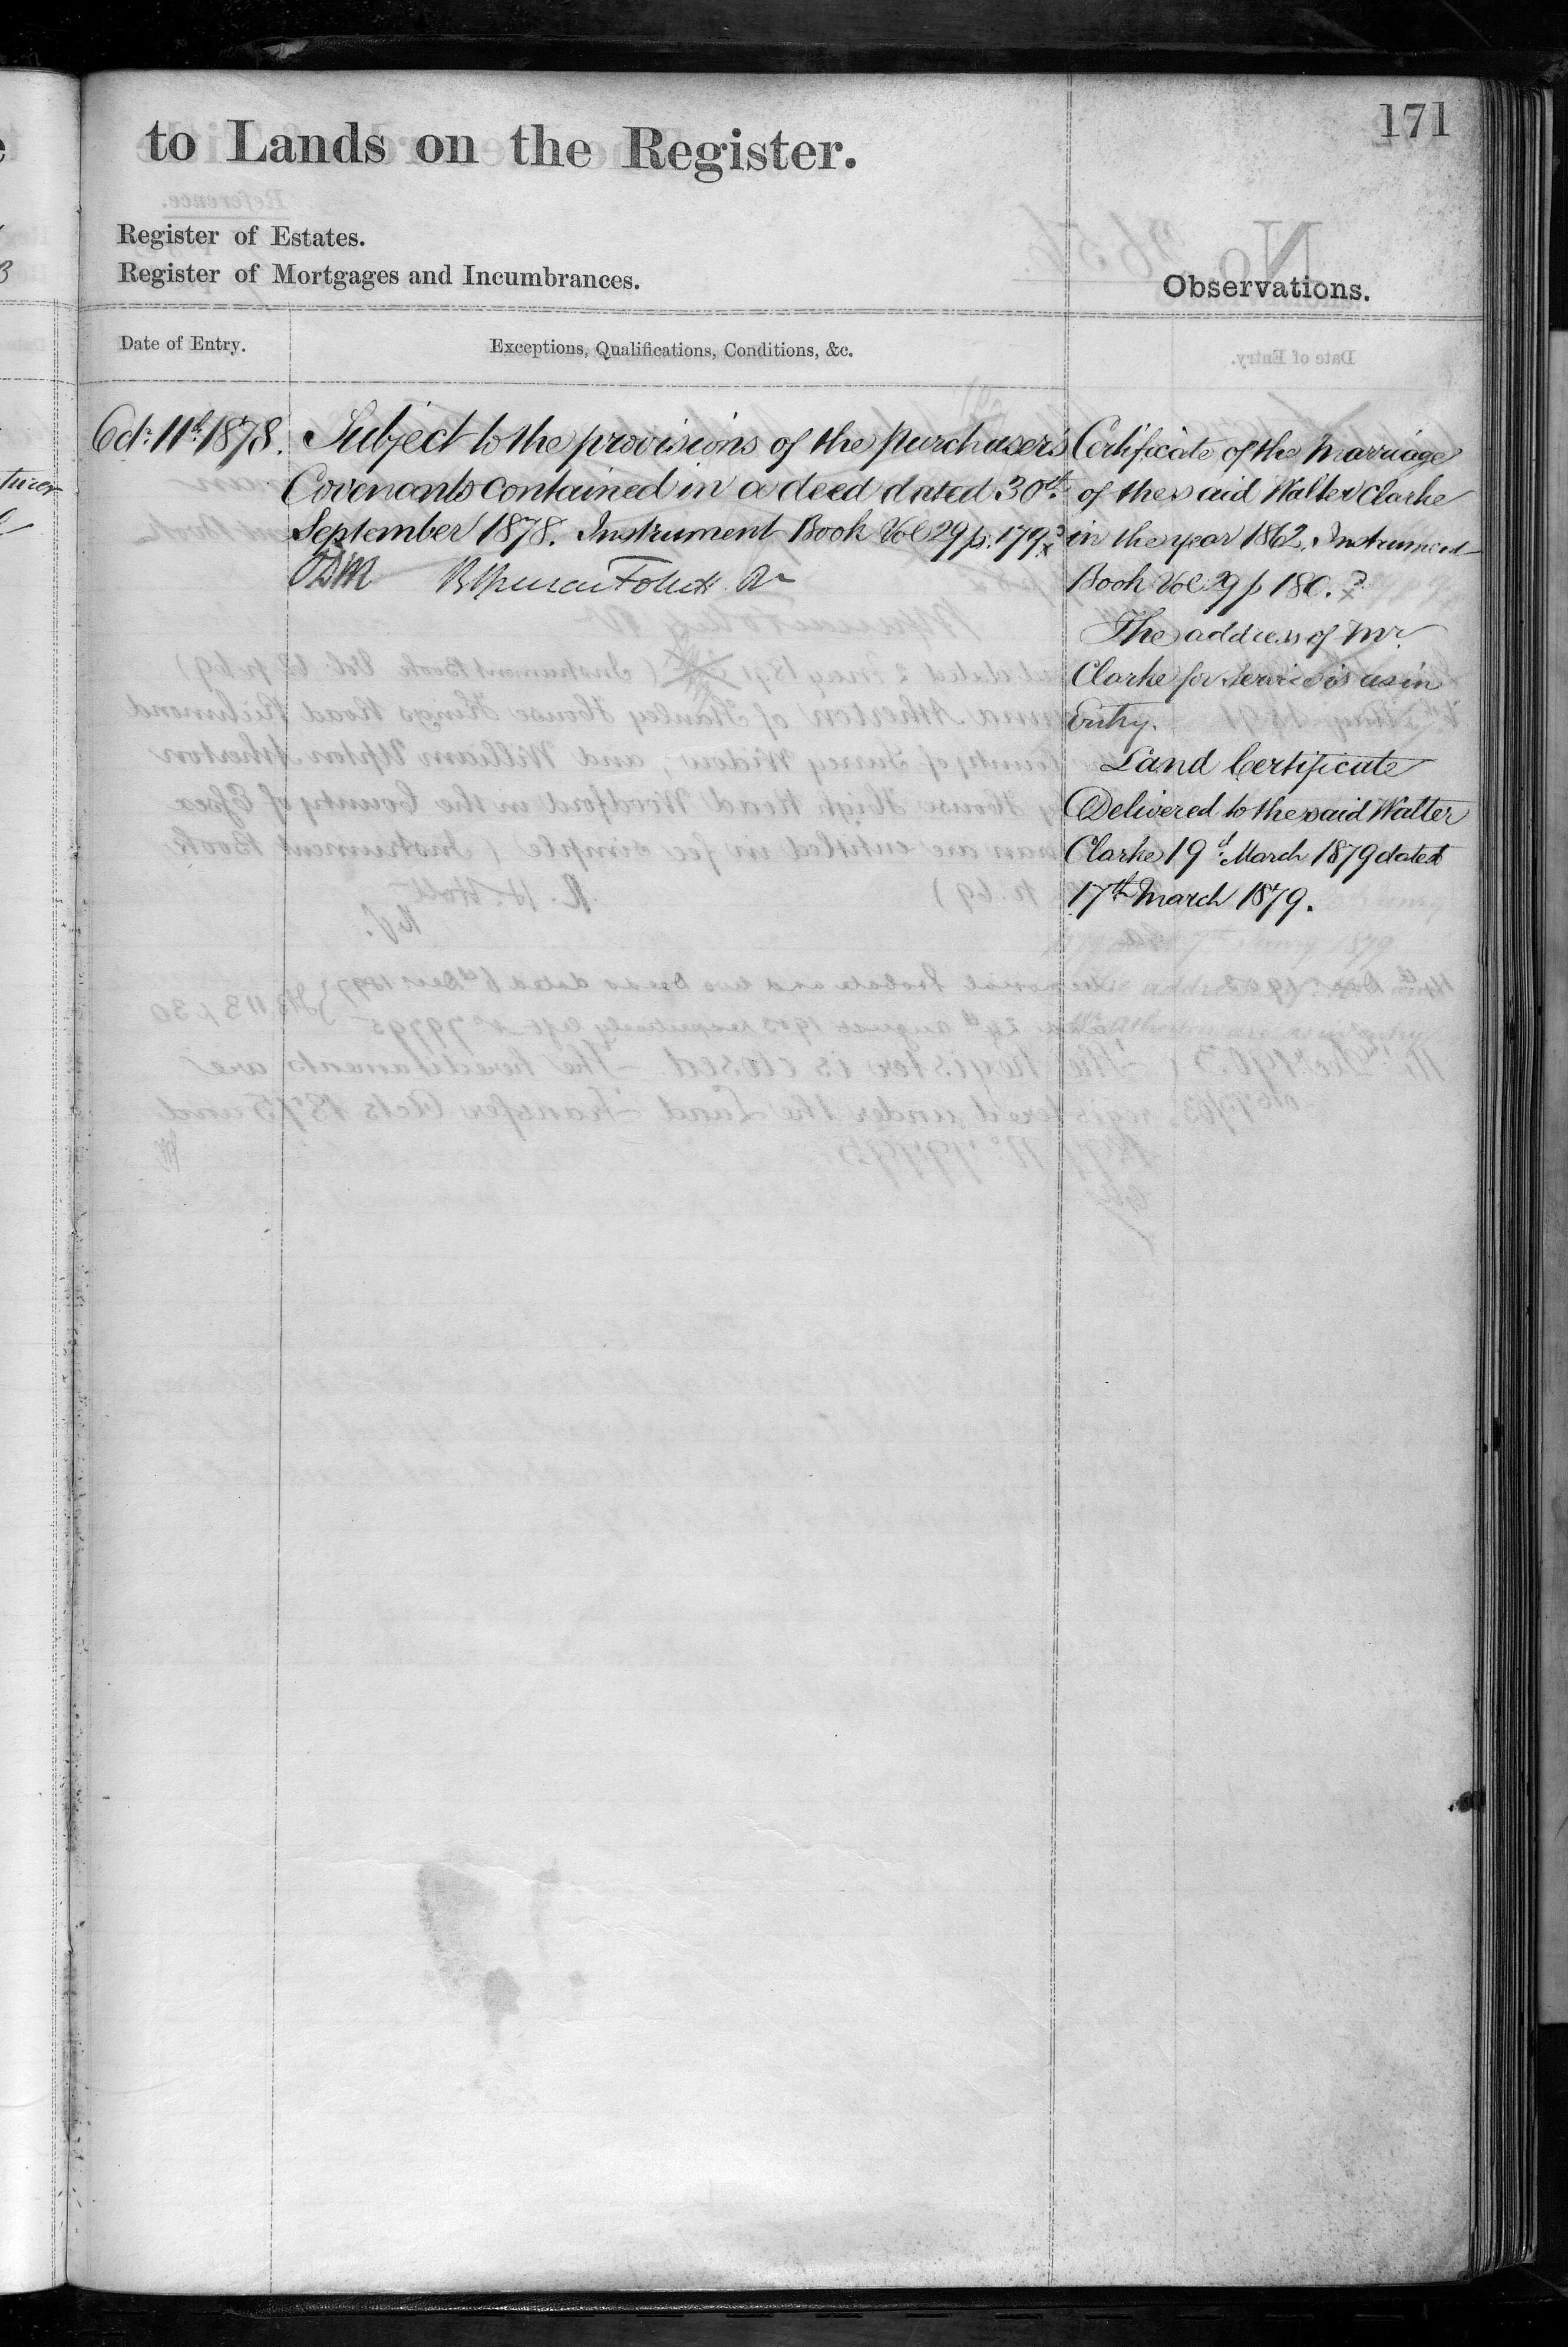 171
to Lands on the Register.
Register of Estates.
Register of Mortgages and Incumbrances.
Observations.
Date of Entry.
Exceptions, Qualifications, Conditions, &c.
Oct: 11th 1878.
Subject to the provisions of the purchasers
Covenants contained in a deed dated 30th
September 1878. Instrument Book Vol 29 p. 179
Certificate of the marriage
of the said Walter Clarke
in the year 1862. Instrument
Book Vol 29 p 180.
The address of Mr
Clarke for service is as in
Entry.
Land Certificate
Delivered to the said Walter
Clarke 19th March 1879 dated
17th March 1879.